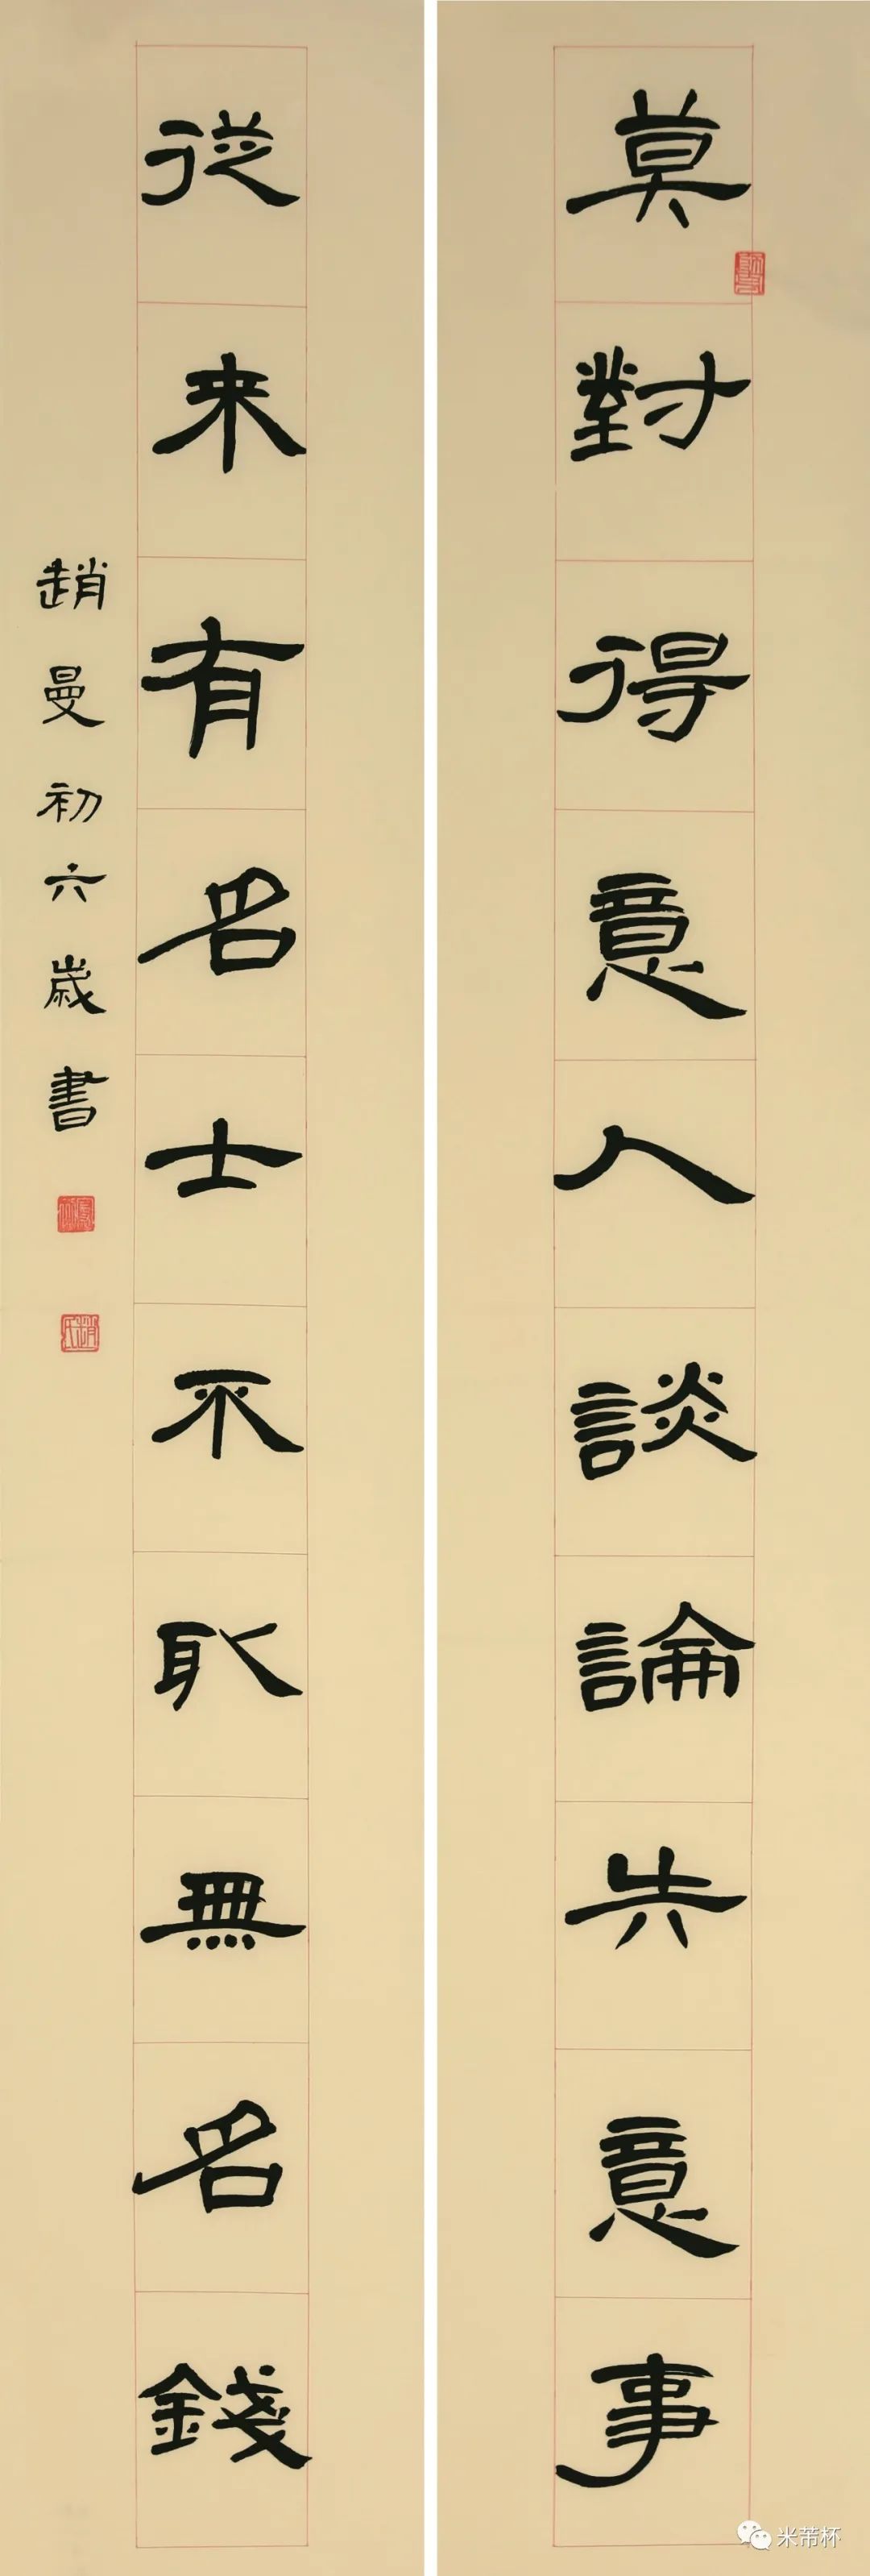 莫對得意人談論失意事
從来有名士不取無名錢
趙曼初六歲書
趙氏
米芾杯